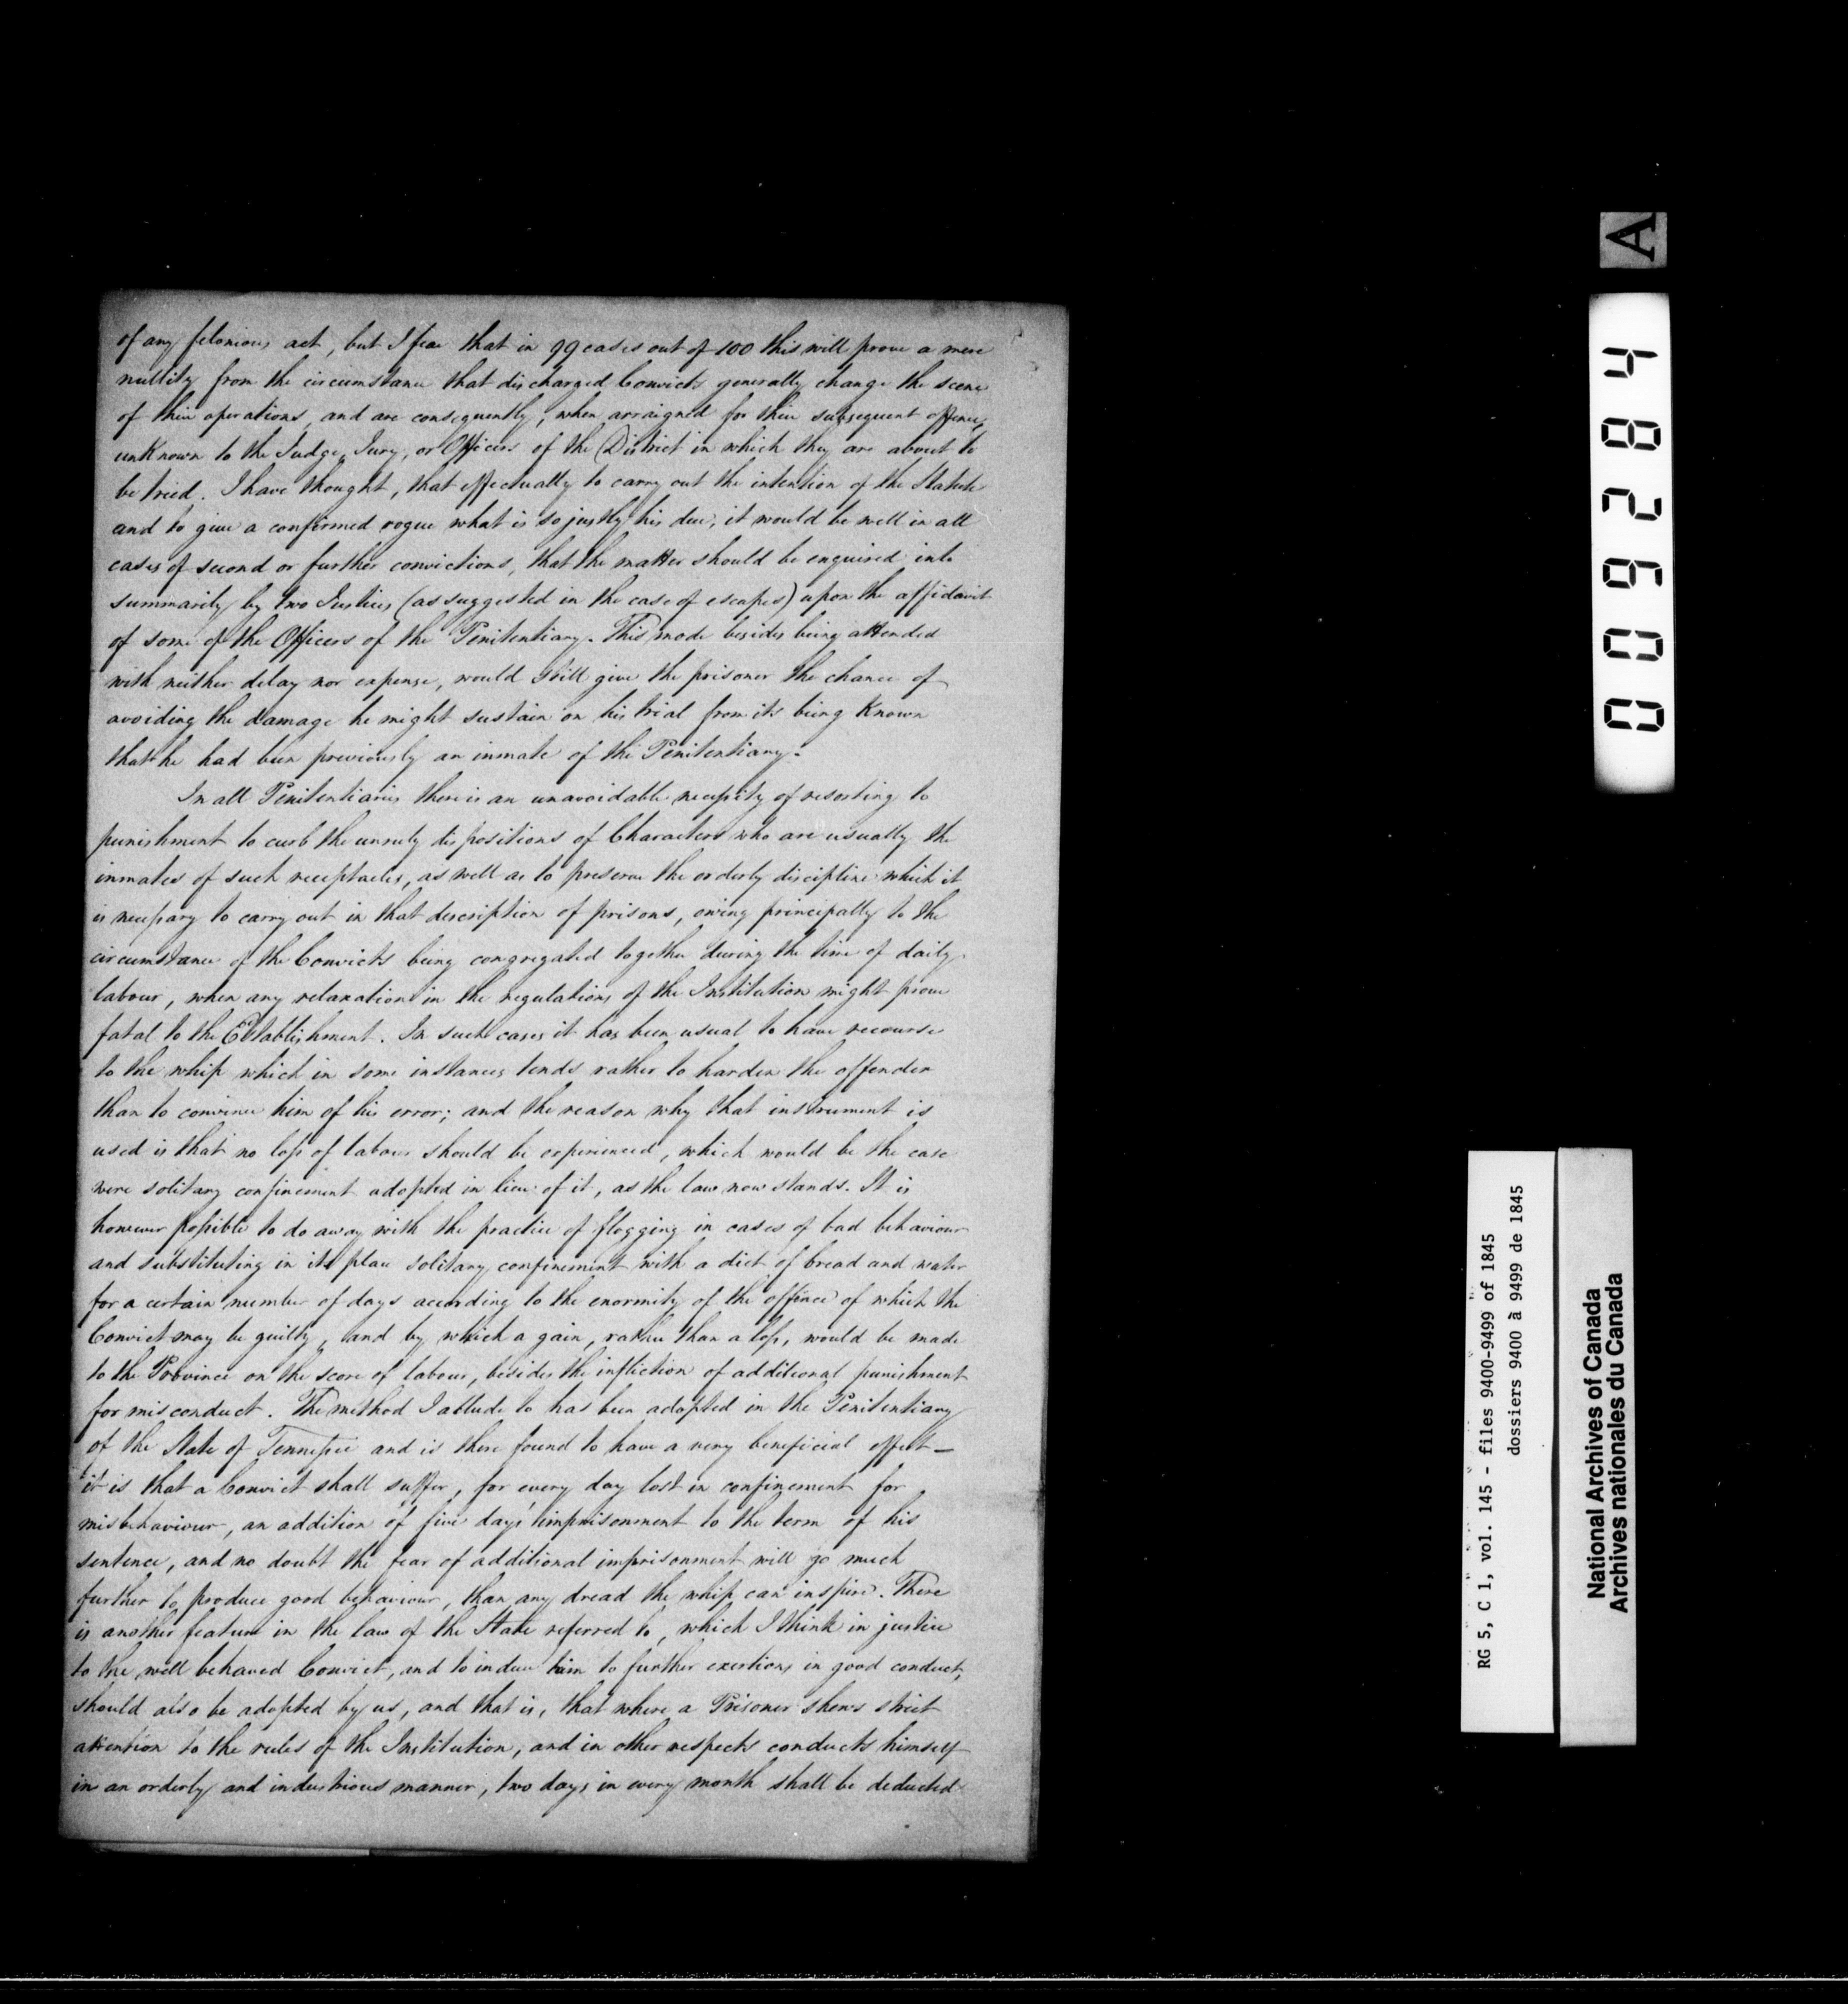 of any felonious act, but I fear that in 99 cases out of 100 this will prove a mere
nullity from the circumstance that discharged Convicts generally change the scene
of their operations, and are consequently, when arraigned for their subsequent offence,
unKnown to the Judge, Jury, or Officers of the District in which they are about to
be tried. I have thought, that effectually to carry out the intention of the Statute
and to give a confirmed rogue what is so justly his due, it would be well in all
cases of second or further convictions, that the matter should be enquired into
summarily by two Justices (as suggested in the case of escapes) upon the affidavit
of some of the Officers of the Penitentiary. This mode besides being attended
with neither delay nor expense, would still give the prisoner the chance of
avoiding the damage he might sustain on his trial from its being Known
that he had been previously an inmate of the Penitentiary.
In all Penitentiaries there is an unavoidable necessity of resorting to
punishment to curb the unruly dispositions of Characters who are usually the
inmates of such receptacles, as well as to preserve the orderly discipline which it
is necessary to carry out in that description of prisons, owing principally to the
circumstance of the Convicts being congregated together during the time of daily
labour, when any relaxation in the regulations of the Institution might prove
fatal to the Establishment. In such cases it has been usual to have recourse
to the whip which in some instances tends rather to harden the offender
than to convince him of his error; and the reason why that instrument is
used is that no loss of labour should be experienced, which would be the case
were solitary confinement adopted in lieu of it, as the law now stands. It is
however possible to do away with the practice of flogging in cases of bad behaviour
and substituting in its place solitary confinement with a diet of bread and water
for a certain number of days according to the enormity of the offence of which the
Convict may be guilty, and by which a gain, rather than a loss, would be made
to the Province on the score of labour, besides the infliction of additional punishment
for misconduct. The method I allude to has been adopted in the Penitentiary
of the State of Tennessee and is there found to have a very beneficial effect—
it is that a Convict shall suffer, for every day lost in confinement for
misbehaviour, an addition of five days imprisonment to the term of his
sentence, and no doubt the fear of additional imprisonment will go much
further to produce good behaviour, than any dread the whip can inspire. There
is another feature in the law of the State referred to, which I think in justice
to the well behaved Convict, and to induce him to further exertions in good conduct,
should also be adopted by us, and that is, that where a Prisoner shews strict
attention to the rules of the Institution, and in other respects conducts himself
in an orderly and industrious manner, two days in every month shall be deducted
A
0 0 6 2 8 4
RG 5, C 1, vol. 145 - files 9400-9499 of 1845
dossiers 9400 à 9499 de 1845
National Archives of Canada
Archives nationales du Canada